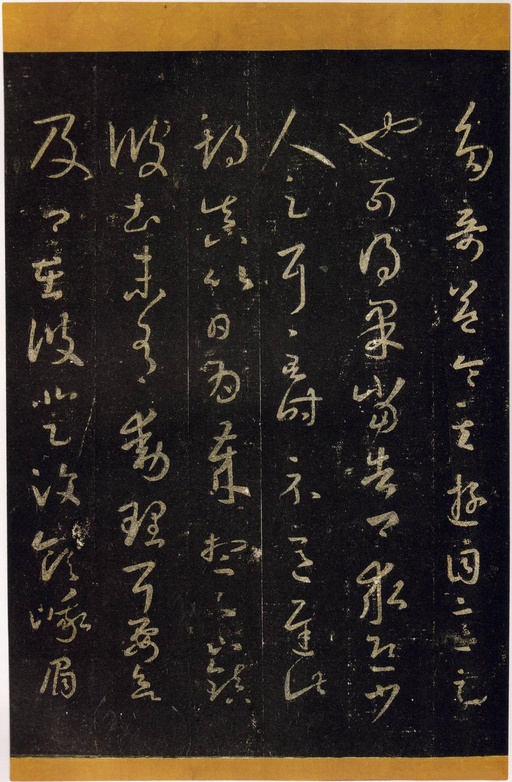 多奇益令其遊目意足
也可得果當告卿求迎少
人足耳至時示意遲此
期真以日為歲想足下鎮
彼土未有動理耳要欲
及卿在彼登汶領峨眉